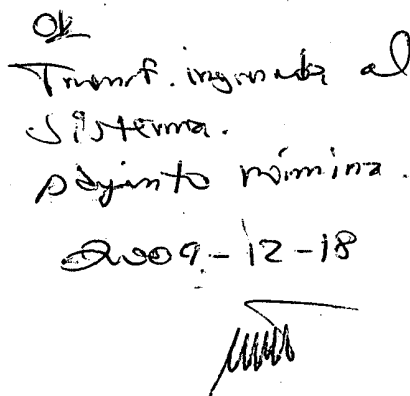 Ok
Transf. ingresada al
Sistema.
Adjunto nómina.
2009-12-18